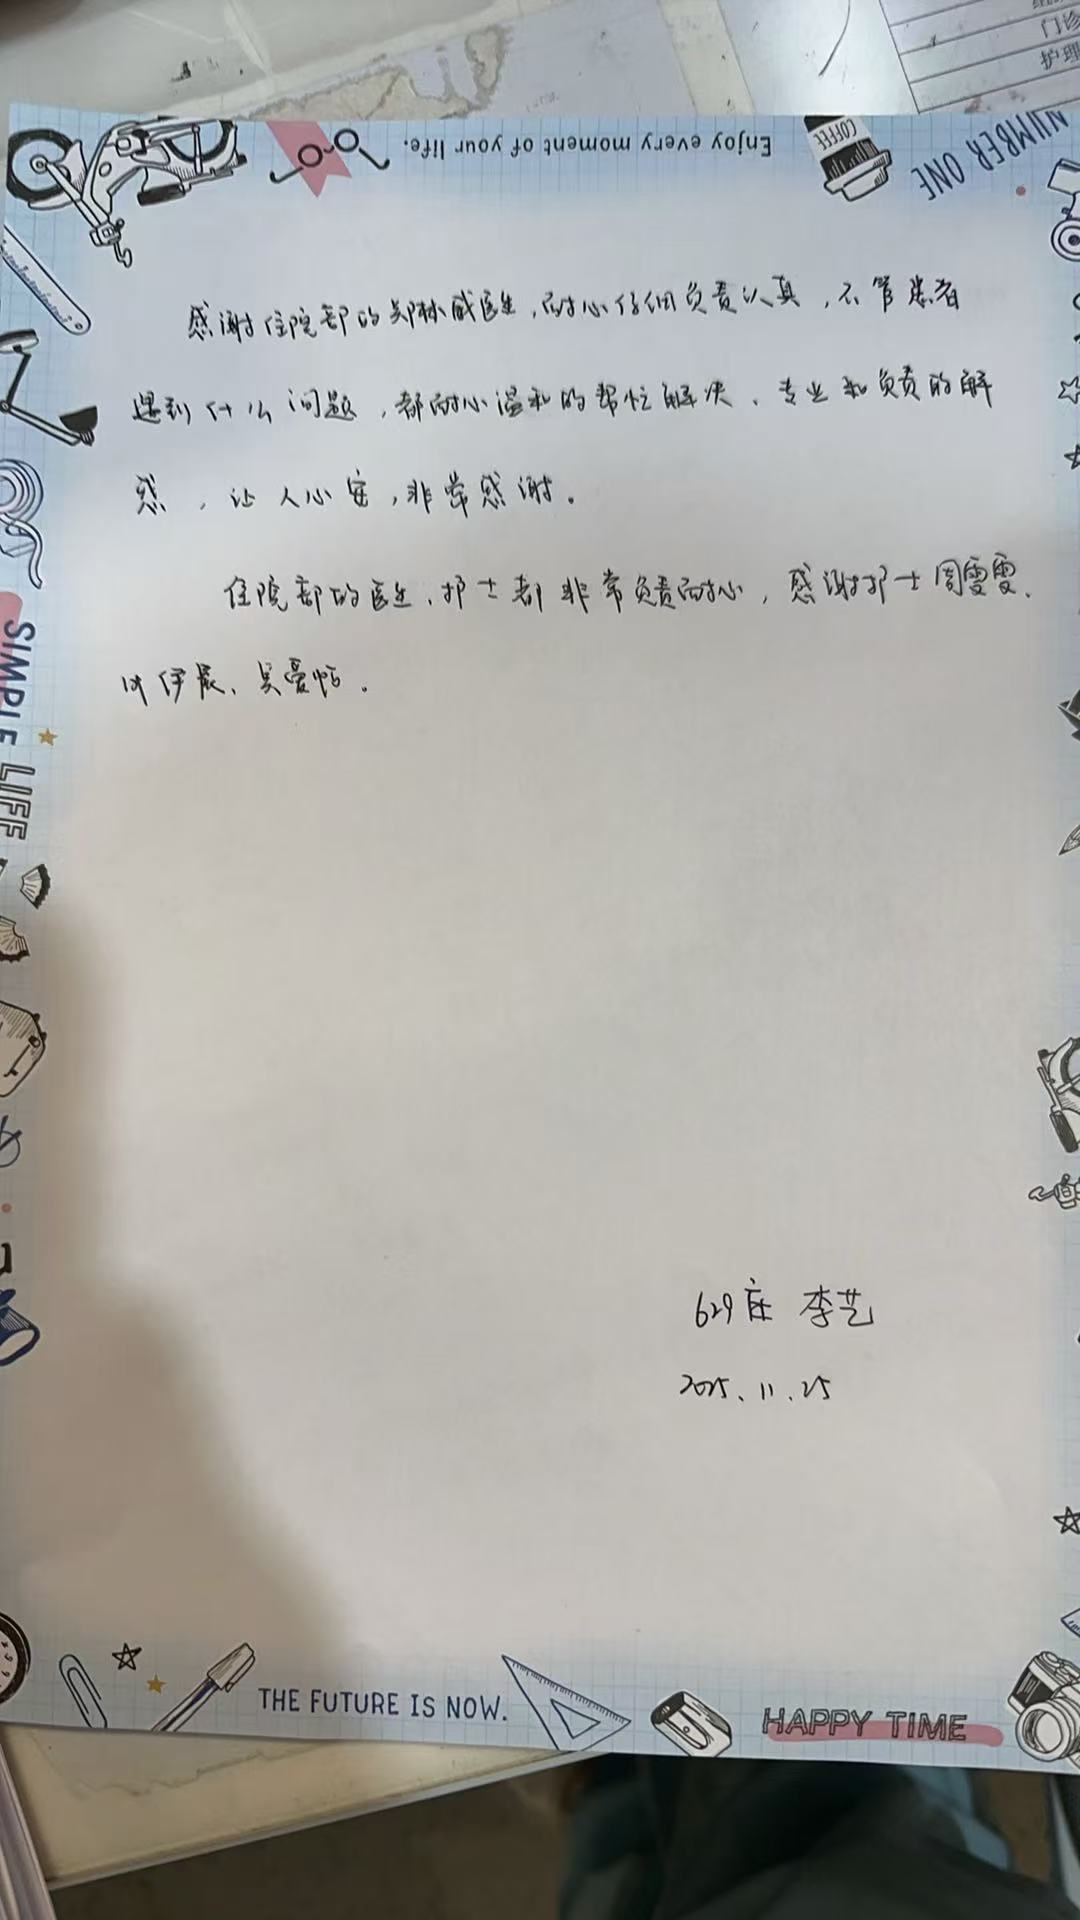 门诊
护理
Enjoy every moment of your life.
COFFEE
NUMBER ONE
感谢住院部的郑林威医生,耐心仔细负责认真,不管患者
遇到什么问题,都耐心温和的帮忙解决、专业和负责的解
惑,让人心安,非常感谢。
住院部的医生、护士都非常负责耐心,感谢护士周雯雯、
伊晨、吴蔓恬。
SIMPLE LIFE
629床 李艺
2025.11.25
THE FUTURE IS NOW.
HAPPY TIME